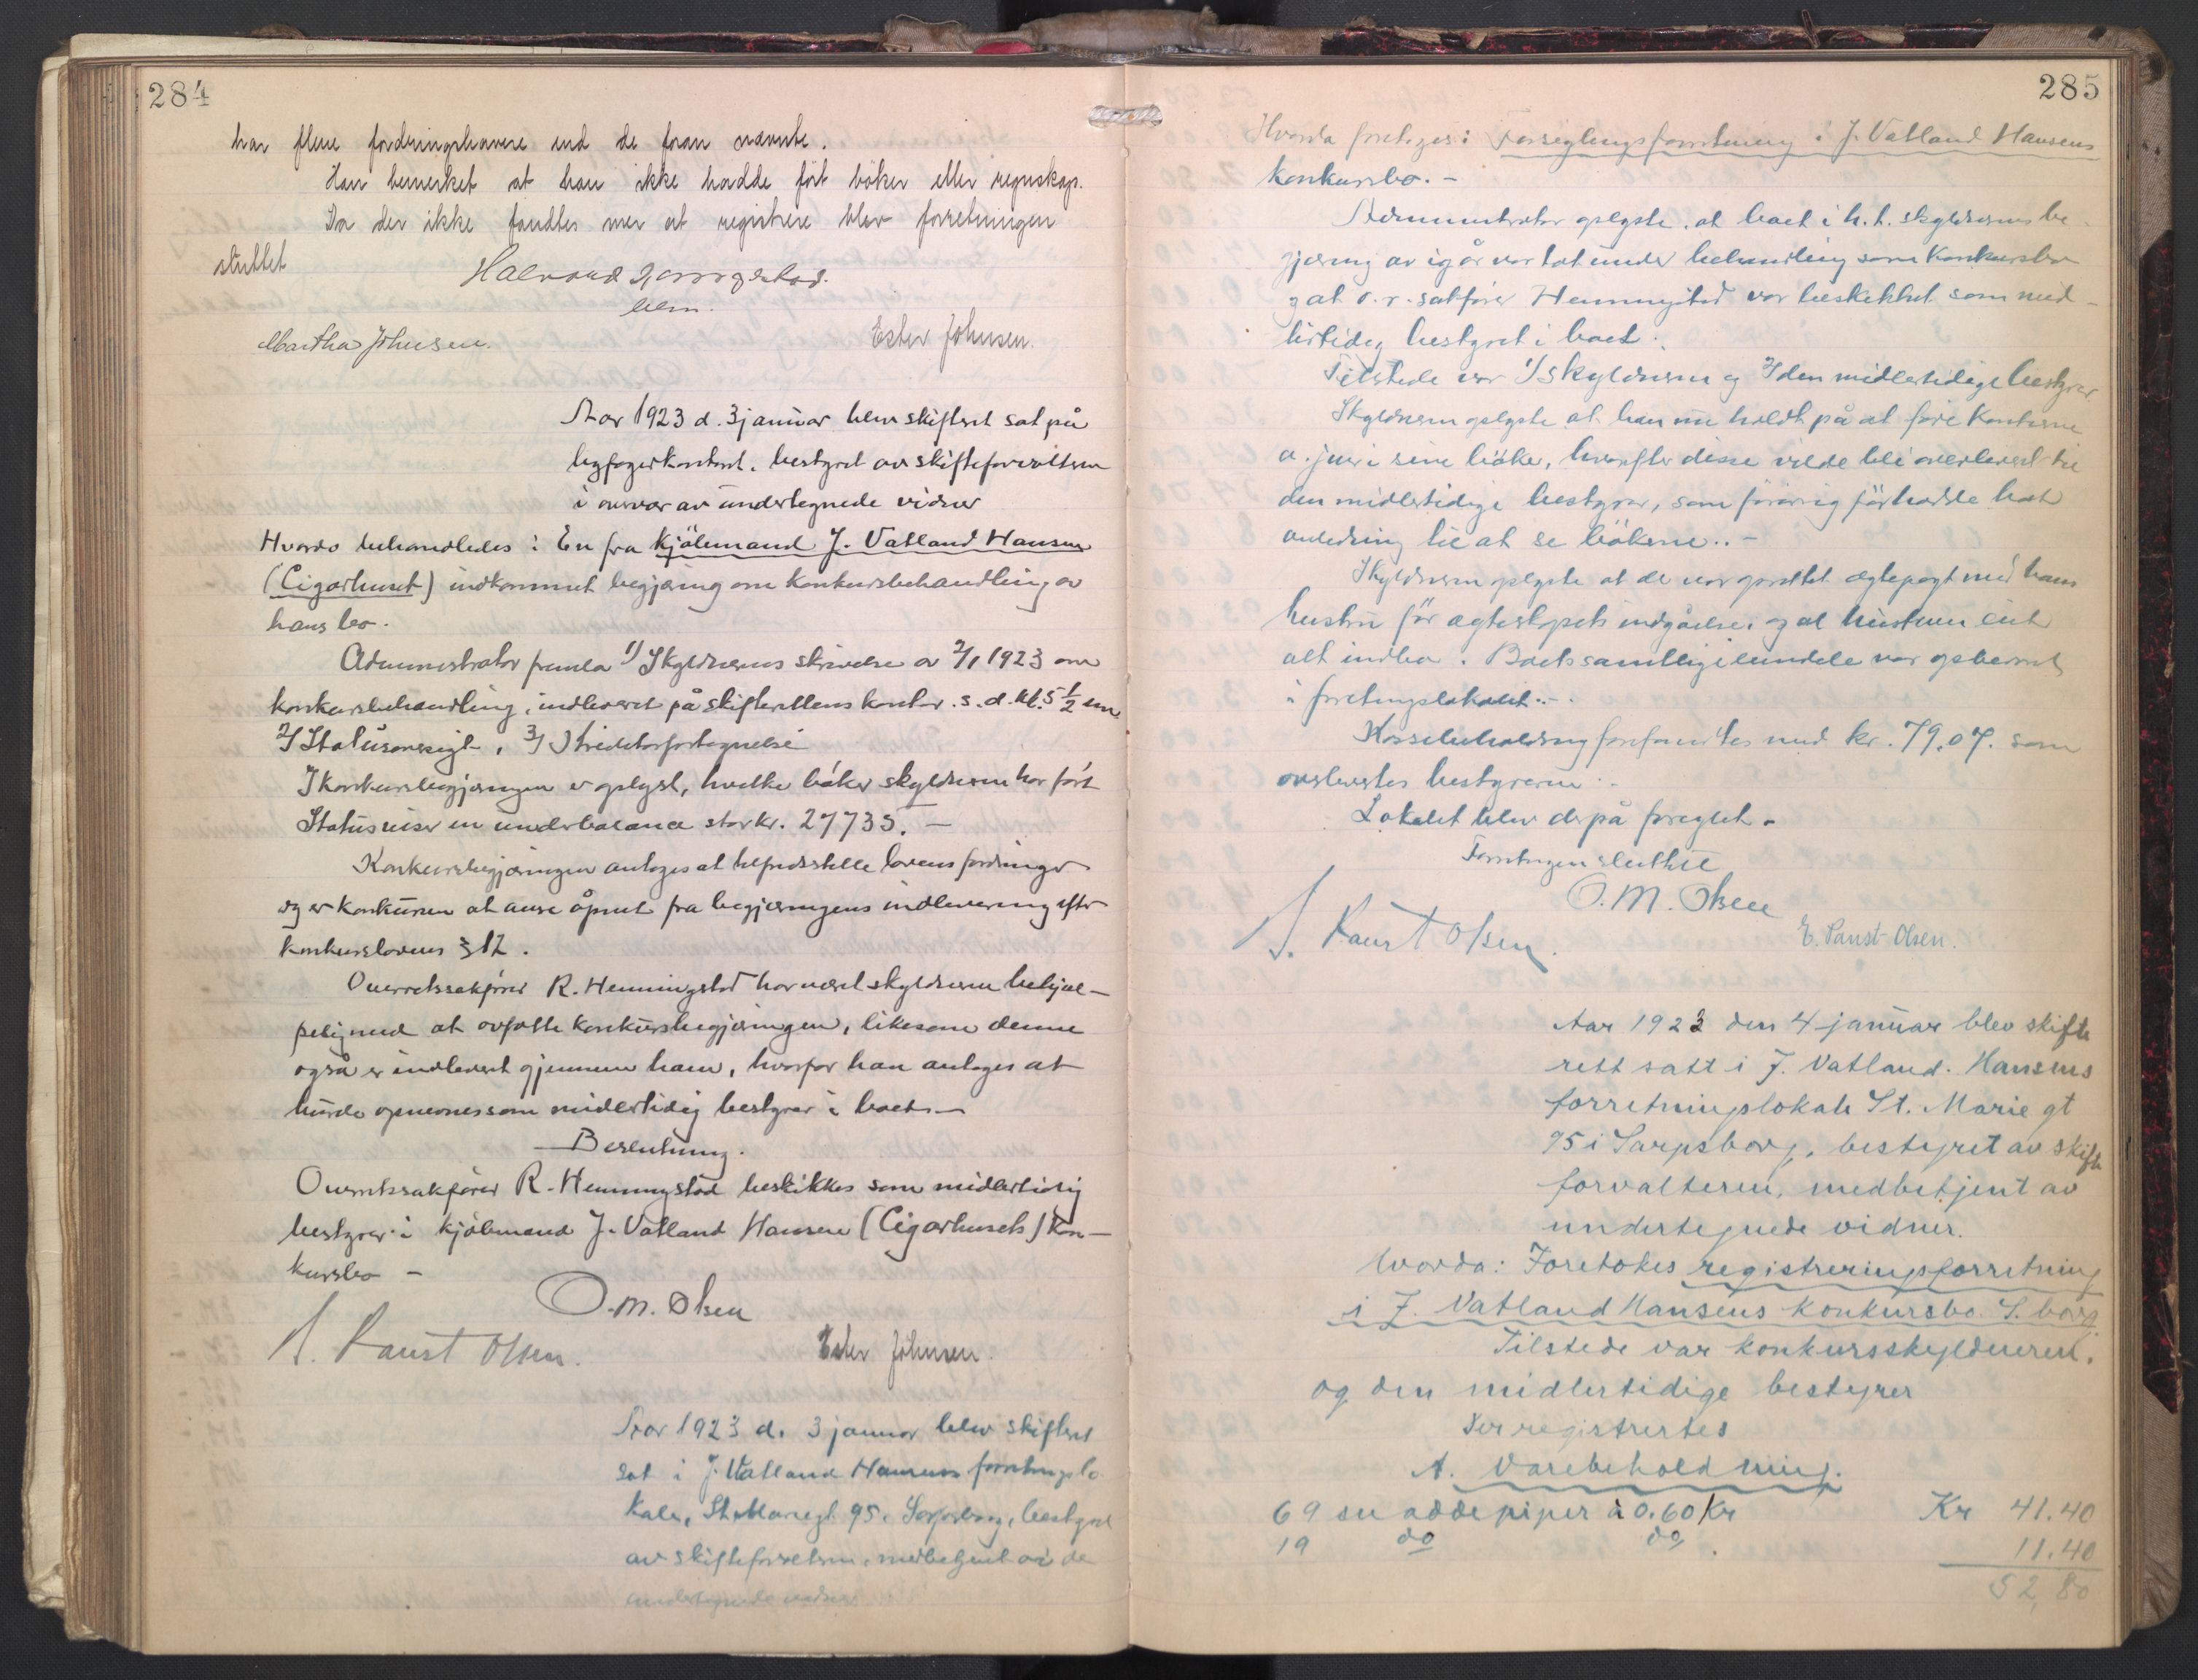 284
har flere fordringshavere end de foran nævnte.
Han bemerket at han ikke hadde ført bøker eller regnskap.
Da der ikke fandtes mer at registrere blev forretningen
sluttet
Halvard
Martha Johnsen.
Ester Johnsen.
Aar 1923 d. 3 januar blev skifteret sat på
byfogedkontoret, bestyret av skifteforvalteren
i overvær av undertegnede vidner
Hvorda behandledes: En fra kjöbmand J. Vatland Hansen
(Cigarhuset) indkommet begjæring om konkursbehandling av
hans bo.
Administrator fremla 1/ Skyldnerens skrivelse av 2/1 1923 om
konkursbehandling, indleveret på skifterettens kontor s. d. kl. 5 1/2 em
2/ Statusoversigt, 3/ Kreditorfortegnelse
I konkursbegjæringen er oplyst, hvilke böker skyldneren har fört
Status viser en underbalance stor kr. 27735. —
Konkursbegjæringen antages at tilfredsstille lovens fordringer
og er konkursen at anse åpnet fra begjæringens indlevering efter
konkurslovens § 12.
Overretssakförer R. Hemmingstad har været skyldneren behjæl-
pelig med at avfatte konkursbegjæringen, likesom denne
også er indleveret gjennem ham, hvorfor han antages at
burde opnevnes som midlertidig bestyrer i boet. —
Beslutning.
Overretssakförer R. Hemmingstad beskikkes som midlertidig
bestyrer i kjöbmand J. Vatland Hansen (Cigarhusets) kon-
kursbo —
O. M. Olsen
A. Paust Olsen.
Ester Johnsen.
Aar 1923 d. 3 januar blev skifteret
sat i J. Vatland Hansens forretningslo-
kale, St. Mariegt. 95, Sarpsborg, bestyret
av skifteforvalteren, medbetjent av de
undertegnede vidner
285
Hvorda foretages: Forseglingsforretning i J. Vatland Hansens
konkursbo. —
Administrator oplyste, at boet i h. t. skyldnerens be-
gjæring av igår var tat under behandling som konkursbo
og at o. r. sakförer Hemmingstad var beskikket som mid-
lertidig bestyrer i boet.
Tilstede var 1/ skyldneren og 2/ den midlertidige bestyrer
Skyldneren oplyste at han nu holdt på at före kontiene
a. jour i sine böker, hvorefter disse vilde bli overlevert til
den midlertidige bestyrer, som forövrig för hadde hat
anledning til at se bökerne. —
Skyldneren oplyste at der var oprettet ægtepagt med hans
hustru för ægteskapets indgåelse, og at hustruen eiet
alt indbo. Boets samtlige eiendele var opbevart
i forretningslokalet. —
Kassebeholdning forefandtes med kr. 79,07. som
overlevertes bestyreren.
Lokalet blev derpå forseglet.
Forretningen sluttet
O. M. Olsen
A. Paust Olsen.
E. Paust-Olsen.
Aar 1923 den 4 januar blev skifte
rett satt i J. Vatland. Hansens
forretningslokale St. Marie gt
95 i Sarpsborg, bestyret av skifte
forvalteren, medbetjent av
undertegnede vidner.
Hvorda: Foretokes registreringsforretning
i J. Vatland Hansens konkursbo. S.borg.
Tilstede var konkursskyldneren.
og den midlertidige bestyrer
Der registrertes
A. Varebeholdning.
69 snaddepiper à 0.60 Kr Kr 41.40
19 do do. 11.40
52,80